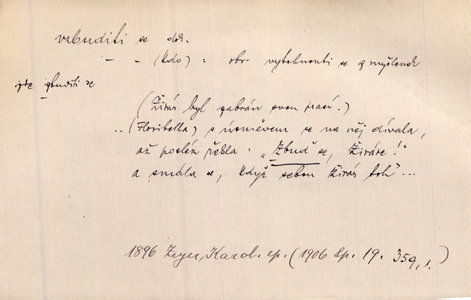 vzbuditi se dok.
- - (kdo) = obr. vytrhnouti se z myšlenek
jde zbuditi se
(Živáš byl zabrán svou prací.)
.. (Floribella) s úsměvem se na něj dívala,
až posléz řekla: „Zbuď se, Živáši!"
a smála se, když sebou Živáš trh'...
1896 Zeyer, Karol. ep. (1906 Sp. 19. 359,1.)